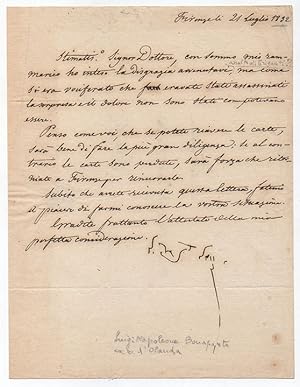 Firenze li 21 Luglio 1832
Stimatis.º Signor Dottore, con sommo mio ram-
marico ho inteso la disgrazia avvenutavi, ma come
si era vociferato che eravate stato assassinati
la sorpresa e il dolore non sono stati
essere.
Penso come voi che se potete riavere le carte,
sarà bene di fare la più gran diligenza; se al con-
trario le carte sono perdute, sarà forza che ritor-
niate a Firenze per rinnovarle.
Subito che avrete ricevuta questa lettera, fatemi
il piacere di farmi conoscere la vostra situazione.
Gradite frattanto l'attestato della mia
perfetta considerazione
Luigi Napoleone Bonaparte
ex re d'Olanda